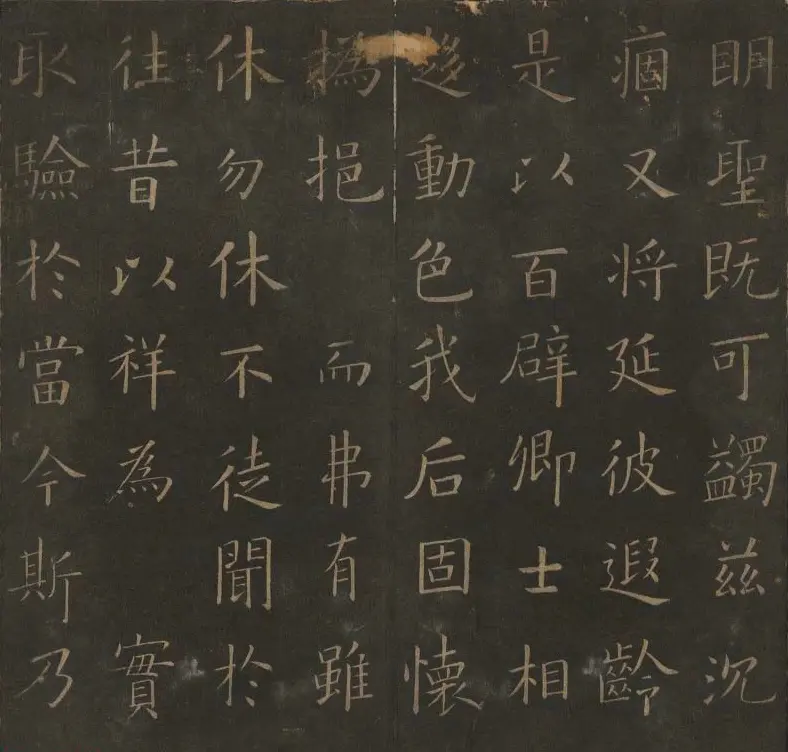 眀聖既可蠲兹沉
痼又将延彼遐齡
是以百辟卿士相
趍動色我后固懷
撝挹 而弗有雖
休勿休不徒聞於
往昔以祥為 實
取驗於當今斯乃